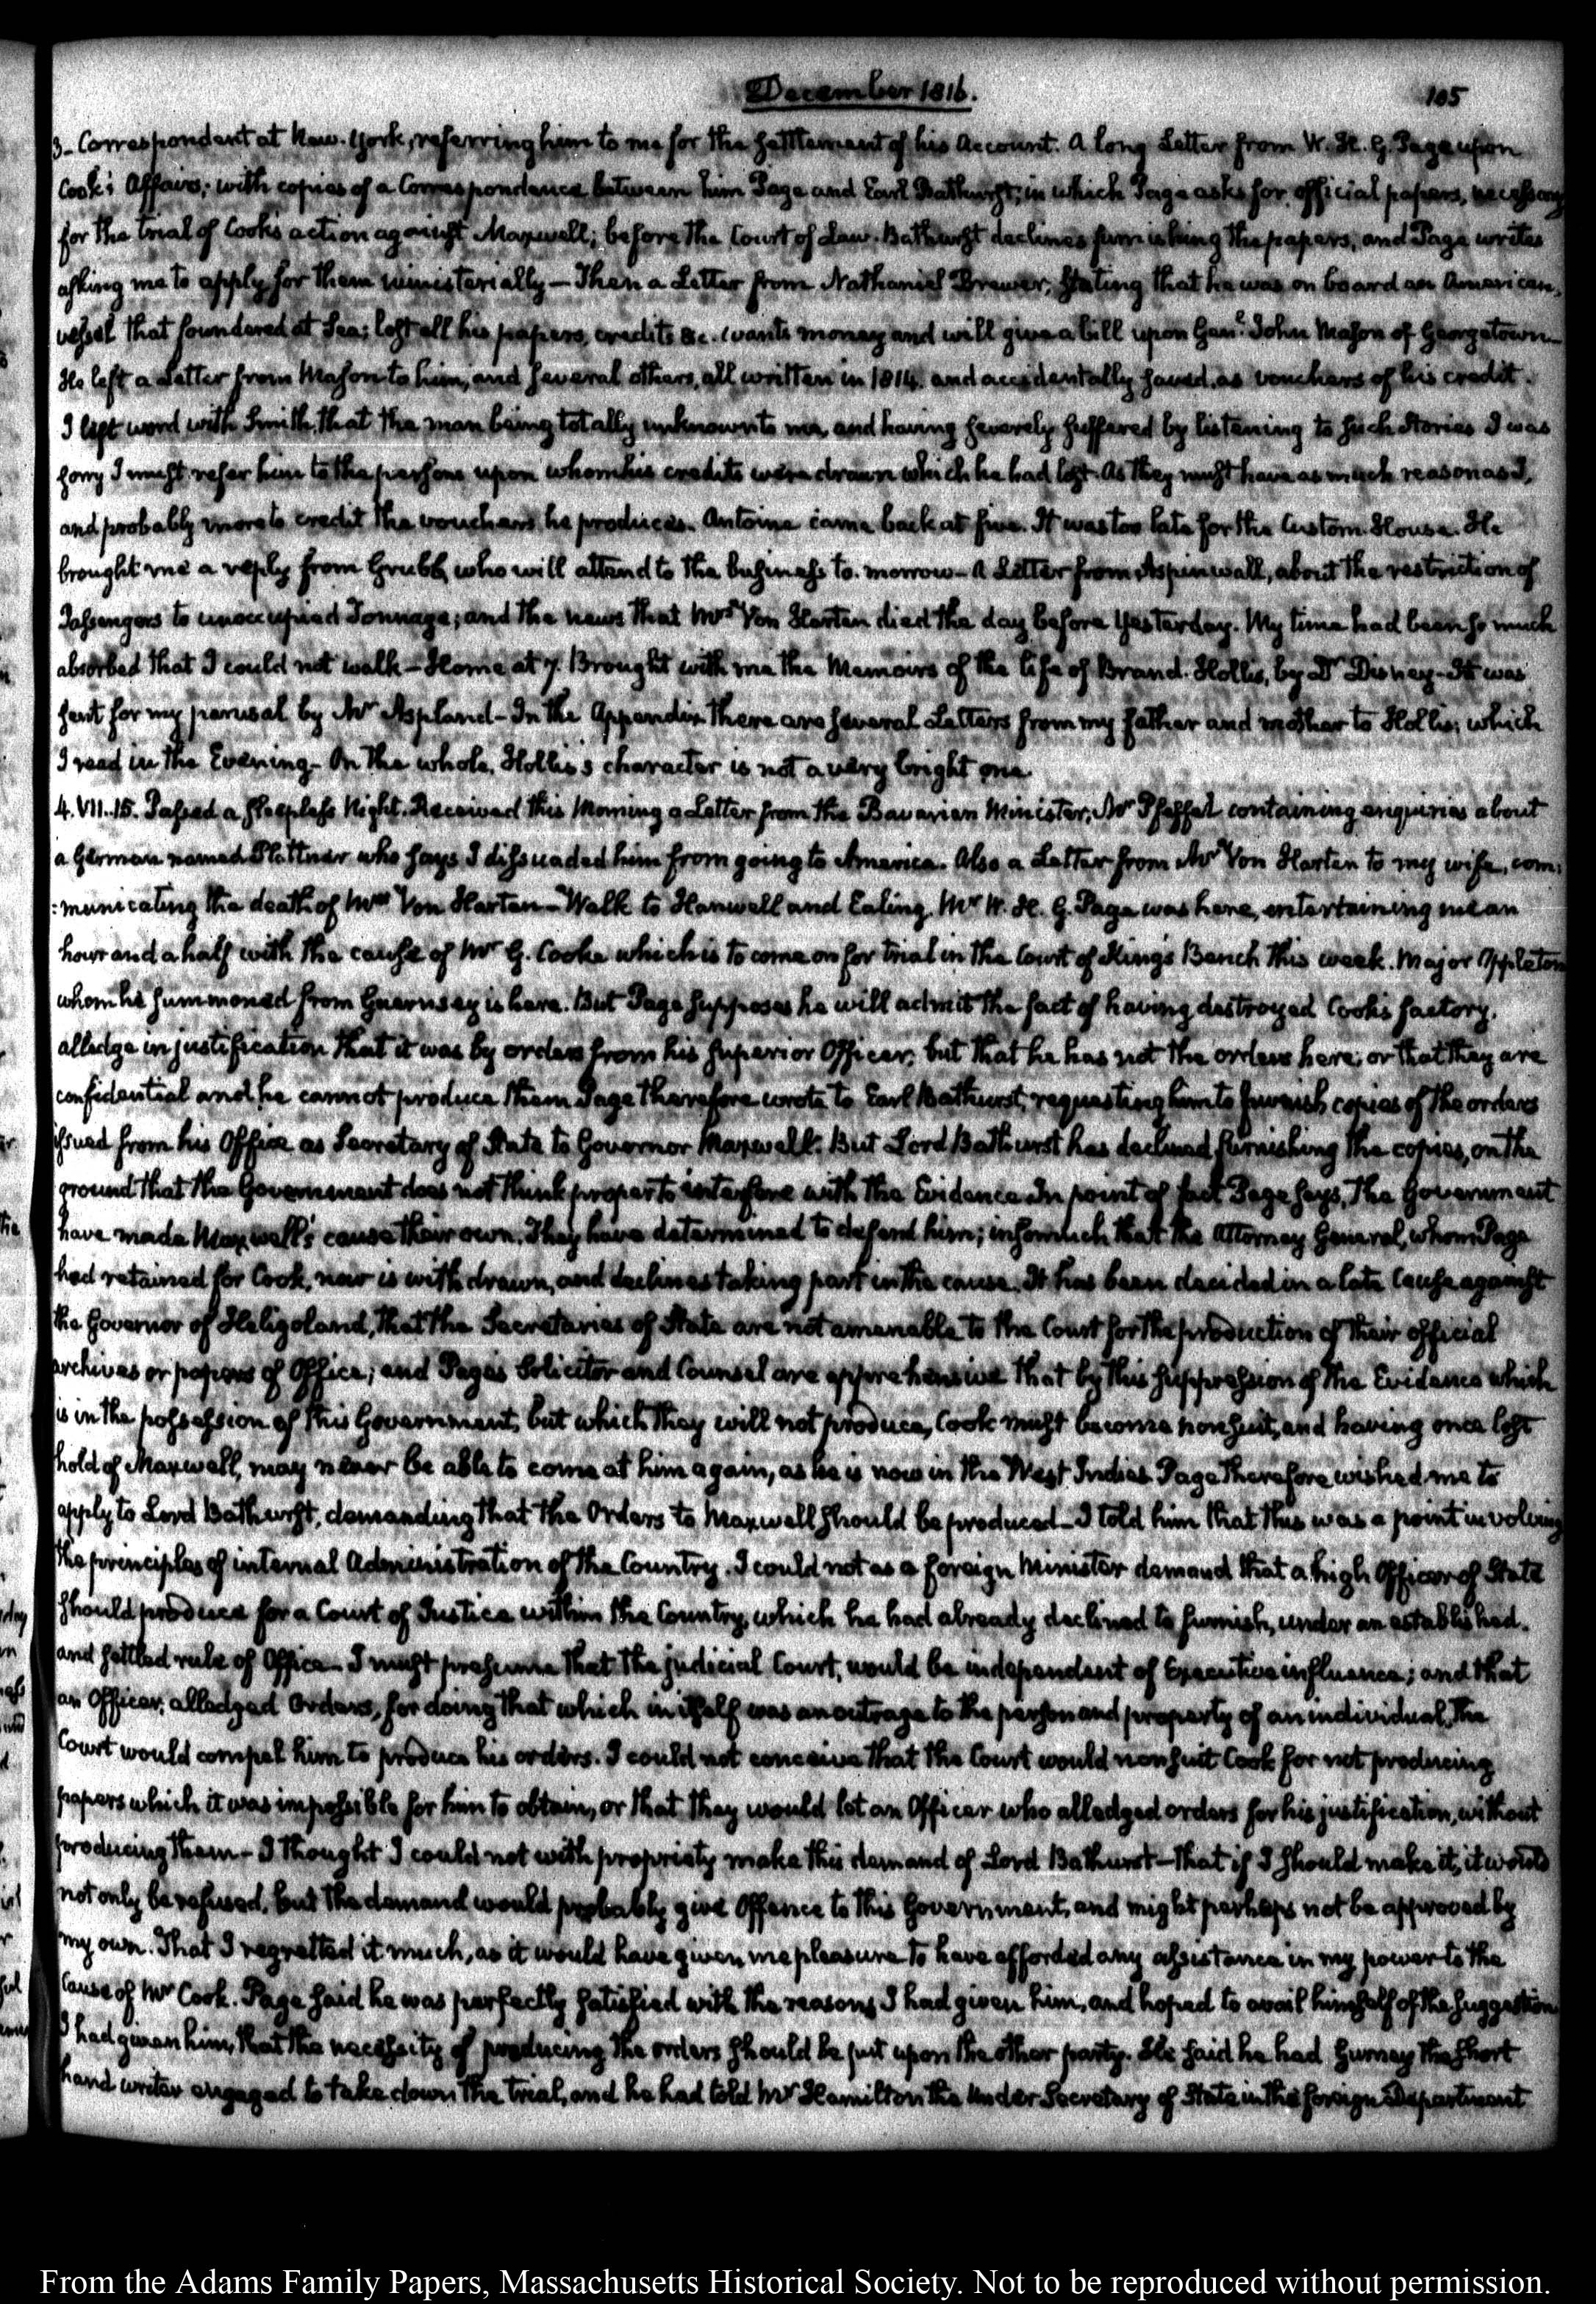 December 1816. 105
3_ Correspondent at New-York, referring him to me for the settlement of his Account. A long Letter from W. H. G. Page upon
Cook's Affairs; with copies of a Correspondence between him Page and Earl Bathurst; in which Page asks for official papers, necessary
for the trial of Cook's action against Maxwell; before the Court of Law. Bathurst declines furnishing the papers, and Page writes
asking me to apply for them ministerially — Then a Letter from Nathaniel Brewer, stating that he was on board an American,
vessel that foundered at Sea; lost all his papers, credits &c. wants money and will give a bill upon Genl. John Mason of Georgetown_
He left a Letter from Mason to him, and several others, all written in 1814. and accidentally saved, as vouchers of his credit.
I left word with Smith, that the man being totally unknown to me, and having severely suffered by listening to such stories I was
sorry I must refer him to the persons upon whom his credits were drawn which he had lost. As they must have as much reason as I,
and probably more to credit the vouchers he produces. Antoine came back at five. It was too late for the Custom-House. He
brought me a reply from Grubb, who will attend to the business to-morrow — A Letter from Aspinwall, about the restriction of
Passengers to unoccupied Tonnage; and the news that Mrs. Von Harten died the day before Yesterday. My time had been so much
absorbed that I could not walk — Home at 7. Brought with me the Memoirs of the life of Brand-Hollis, by Dr Disney — It was
sent for my perusal by Mr Aspland — In the Appendix there are several Letters from my father and mother to Hollis; which
I read in the Evening — On the whole, Hollis's character is not a very bright one
4. VII..15. Passed a sleepless Night. Received this Morning a Letter from the Bavarian Minister, Mr Pfeffel containing enquiries about
a German named Plattner who says I dissuaded him from going to America. Also a Letter from Mr Von Harten to my wife, com:
:municating the death of Mrs Von Harten — Walk to Hanwell and Ealing. Mr W. H. G. Page was here, entertaining me an
hour and a half with the cause of Mr G. Cooke which is to come on for trial in the Court of King's Bench this week. Major Appleton
whom he summoned from Guernsey is here. But Page supposes he will admit the fact of having destroyed Cook's factory,
alledge in justification that it was by orders from his superior Officer; but that he has not the orders here; or that they are
confidential and he cannot produce them. Page therefore wrote to Earl Bathurst, requesting him to furnish copies of the orders
issued from his Office as Secretary of State to Governor Maxwell. But Lord Bathurst has declined furnishing the copies, on the
ground that the Government does not think proper to interfere with the Evidence. In point of fact Page says, The Government
have made Maxwell's cause their own. They have determined to defend him; insomuch that the Attorney General, whom Page
had retained for Cook, now is withdrawn, and declines taking part in the cause. It has been decided in a late Cause against
the Governor of Heligoland, that the Secretaries of State are not amenable to the Court for the production of their official
archives or papers of Office; and Page's Solicitor and Counsel are apprehensive that by this suppression of the Evidence which
is in the possession of this Government, but which they will not produce, Cook must become nonsuit, and having once lost
hold of Maxwell, may never be able to come at him again, as he is now in the West Indies. Page therefore wished me to
apply to Lord Bathurst, demanding that the Orders to Maxwell should be produced — I told him that this was a point involving
the principles of internal Administration of the Country. I could not as a foreign Minister demand that a high Officer of State
should produce for a Court of Justice within the Country, which he had already declined to furnish, under an established.
and settled rule of Office — I must presume that the judicial Court, would be independent of Executive influence; and that
an Officer; alledged Orders, for doing that which in itself was an outrage to the person and property of an individual, the
Court would compel him to produce his orders. I could not conceive that the Court would nonsuit Cook for not producing
papers which it was impossible for him to obtain, or that they would let an Officer who alledged orders for his justification, without
producing them — I thought I could not with propriety make this demand of Lord Bathurst — that if I should make it, it would
not only be refused, but the demand would probably give Offence to this Government, and might perhaps not be approved by
my own. That I regretted it much, as it would have given me pleasure to have afforded any assistance in my power to the
Cause of Mr Cook. Page said he was perfectly satisfied with the reasons I had given him, and hoped to avail himself of the suggestion
I had given him, that the necessity of producing the orders should be put upon the other party. He said he had Gurney the short
hand writer engaged to take down the trial, and he had told Mr Hamilton the Under Secretary of State in the foreign Department
From the Adams Family Papers, Massachusetts Historical Society. Not to be reproduced without permission.